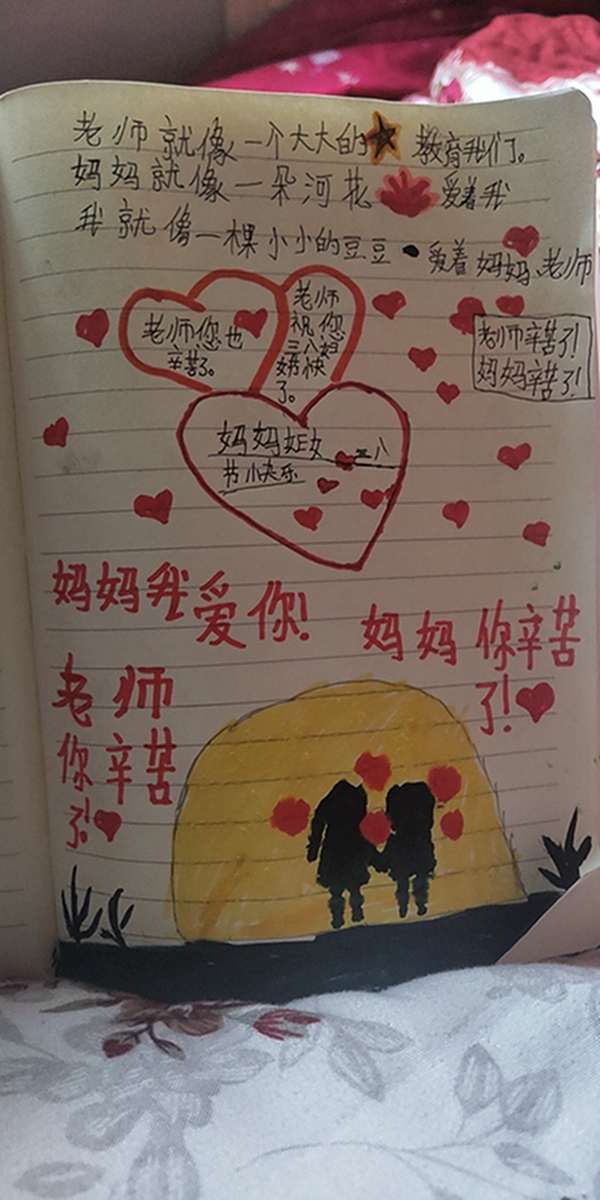 老师就像一个大大的 教育我们。
妈妈就像一朵河花 爱着我
我就像一棵小小的豆豆 爱着妈妈、老师
老师您也
辛苦了。
老师
祝您
三八妇
快
了。
老师辛苦了!
妈妈辛苦了!
妈妈 三八
节小快乐
妈妈我爱你!
妈妈你辛苦
了!
老师
你辛苦
了!